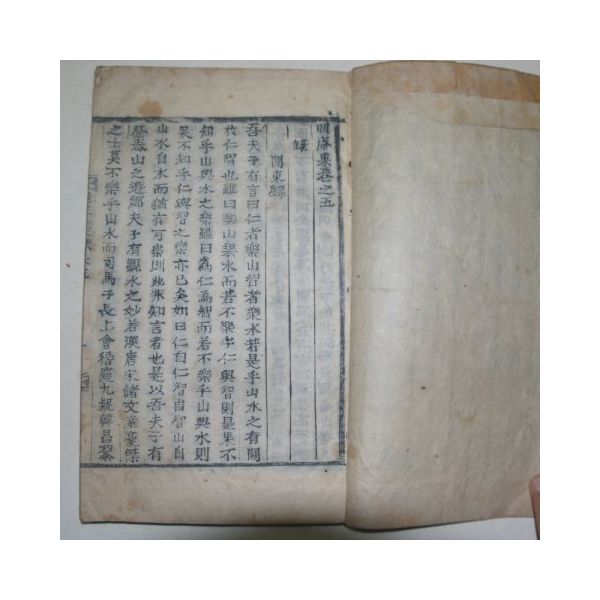 明庵集卷之五
錄
關東錄
吾夫子有言曰仁者樂山智者樂水若是乎山水之有關
於仁智也雖曰樂山樂水而若不樂乎仁與智則是果不
知乎山與水之樂雖曰為仁為智而若不樂乎山與水則
果不知乎仁與智之樂亦已矣如曰仁自仁智自智山自
山水自水而猶有可樂則此未知言者也是以吾夫子有
登泰山之遊鄒夫子有觀水之妙若漢唐宋諸文章豪傑
之士莫不樂乎山水而司馬子長上會稽窺九疑韓昌黎